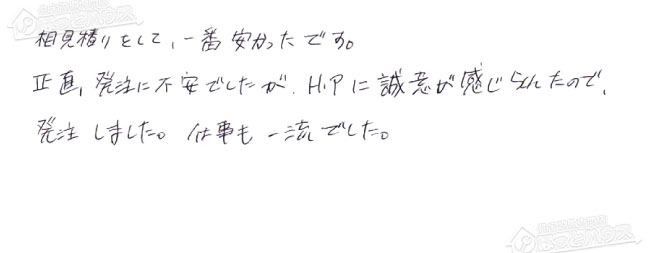 相見積りをして、一番安かったです。
正直、発注に不安でしたが、H.Pに誠意が感じられたので、
発注しました。仕事も一流でした。